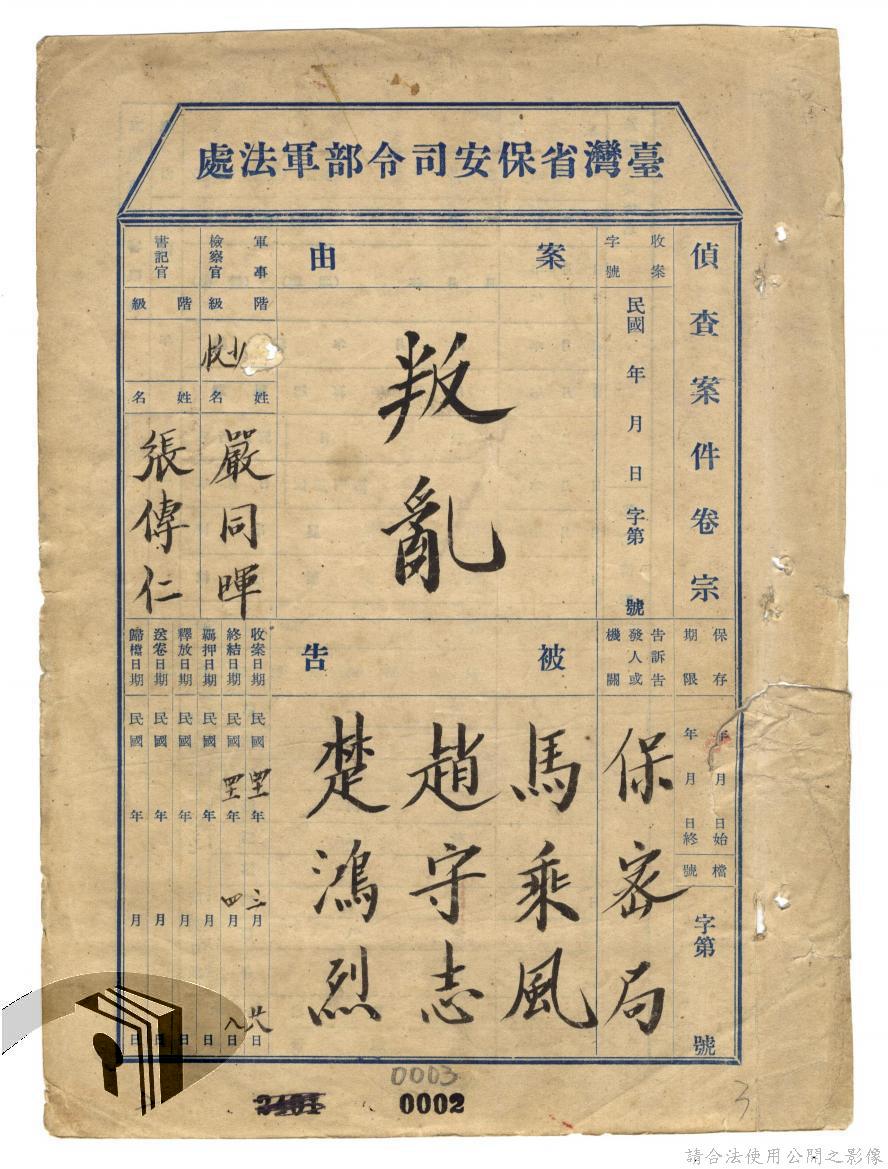 臺灣省保安司令部軍法處
偵查案件卷宗
保存期限
年月日始
年月日終
檔號
字第號
收案字號
民國年月日字第號
告訴告發人或機關
保密局
案由
叛亂
被告
馬乘風
趙守志
楚鴻烈
軍事檢察官
階級
少校
姓名
嚴同暉
書記官
階級
姓名
張傳仁
收案日期民國四十一年三月廿八日
終結日期民國四十一年四月八日
羈押日期民國年月日
釋放日期民國年月日
送卷日期民國年月日
歸檔日期民國年月日
0003
0002
3
請合法使用公開之影像